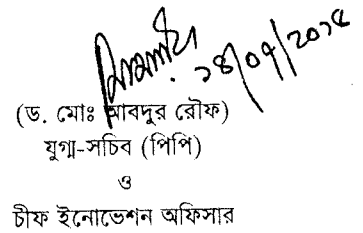 ১৪/০৭/২০১৫
(ড. মোঃ আবদুর রৌফ)
যুগ্ম-সচিব (পিপি)
ও
চীফ ইনোভেশন অফিসার